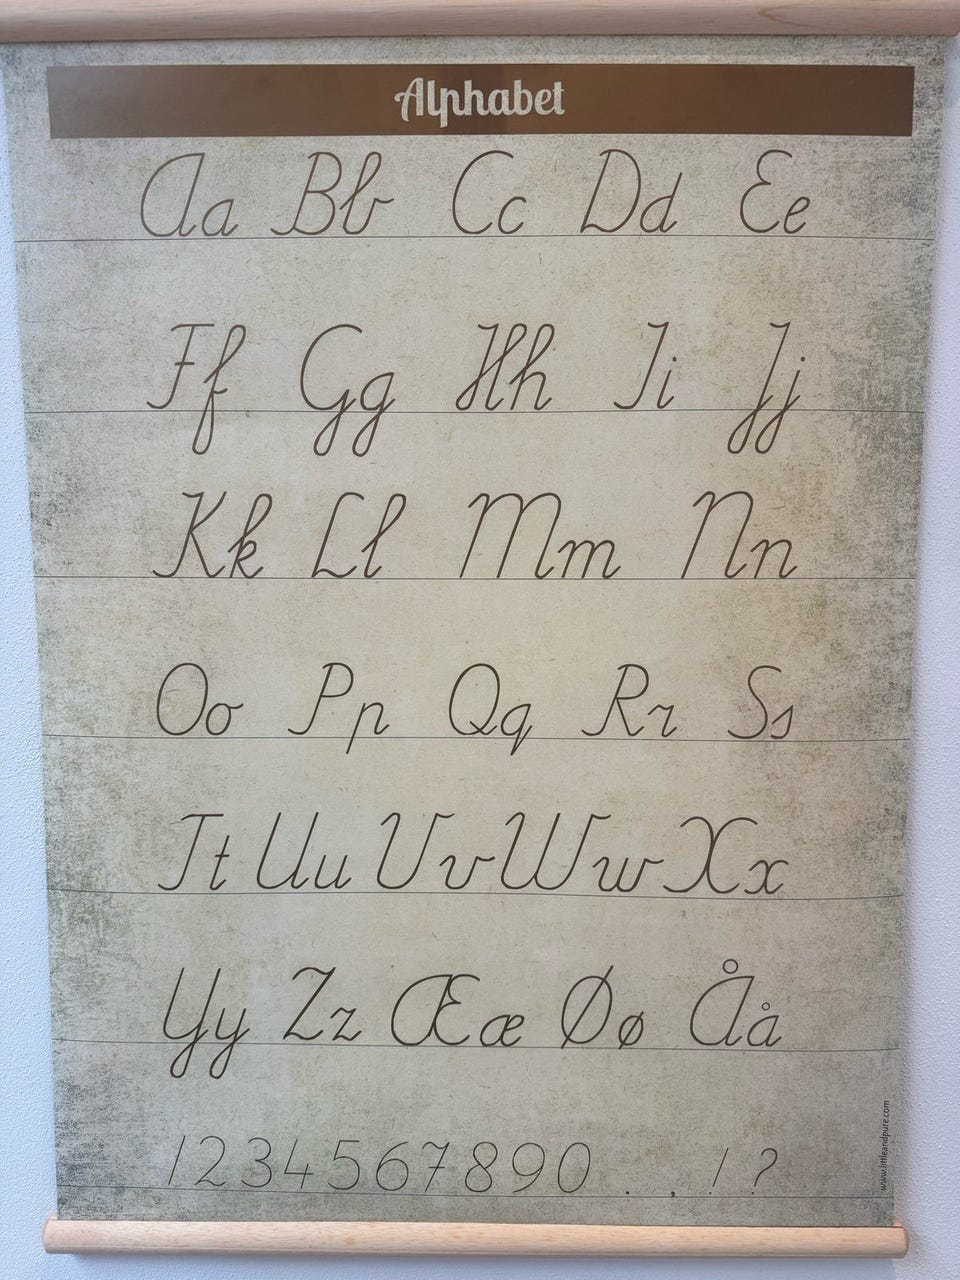 Alphabet
Aa Bb Cc Dd Ee
Ff Gg Hh Ii Jj
Kk Ll Mm Nn
Oo Pp Qq Rr Ss
Tt Uu Vv Ww Xx
Yy Zz Ææ Øø Åå
1234567890 . , ! ?
www.littleandpure.com